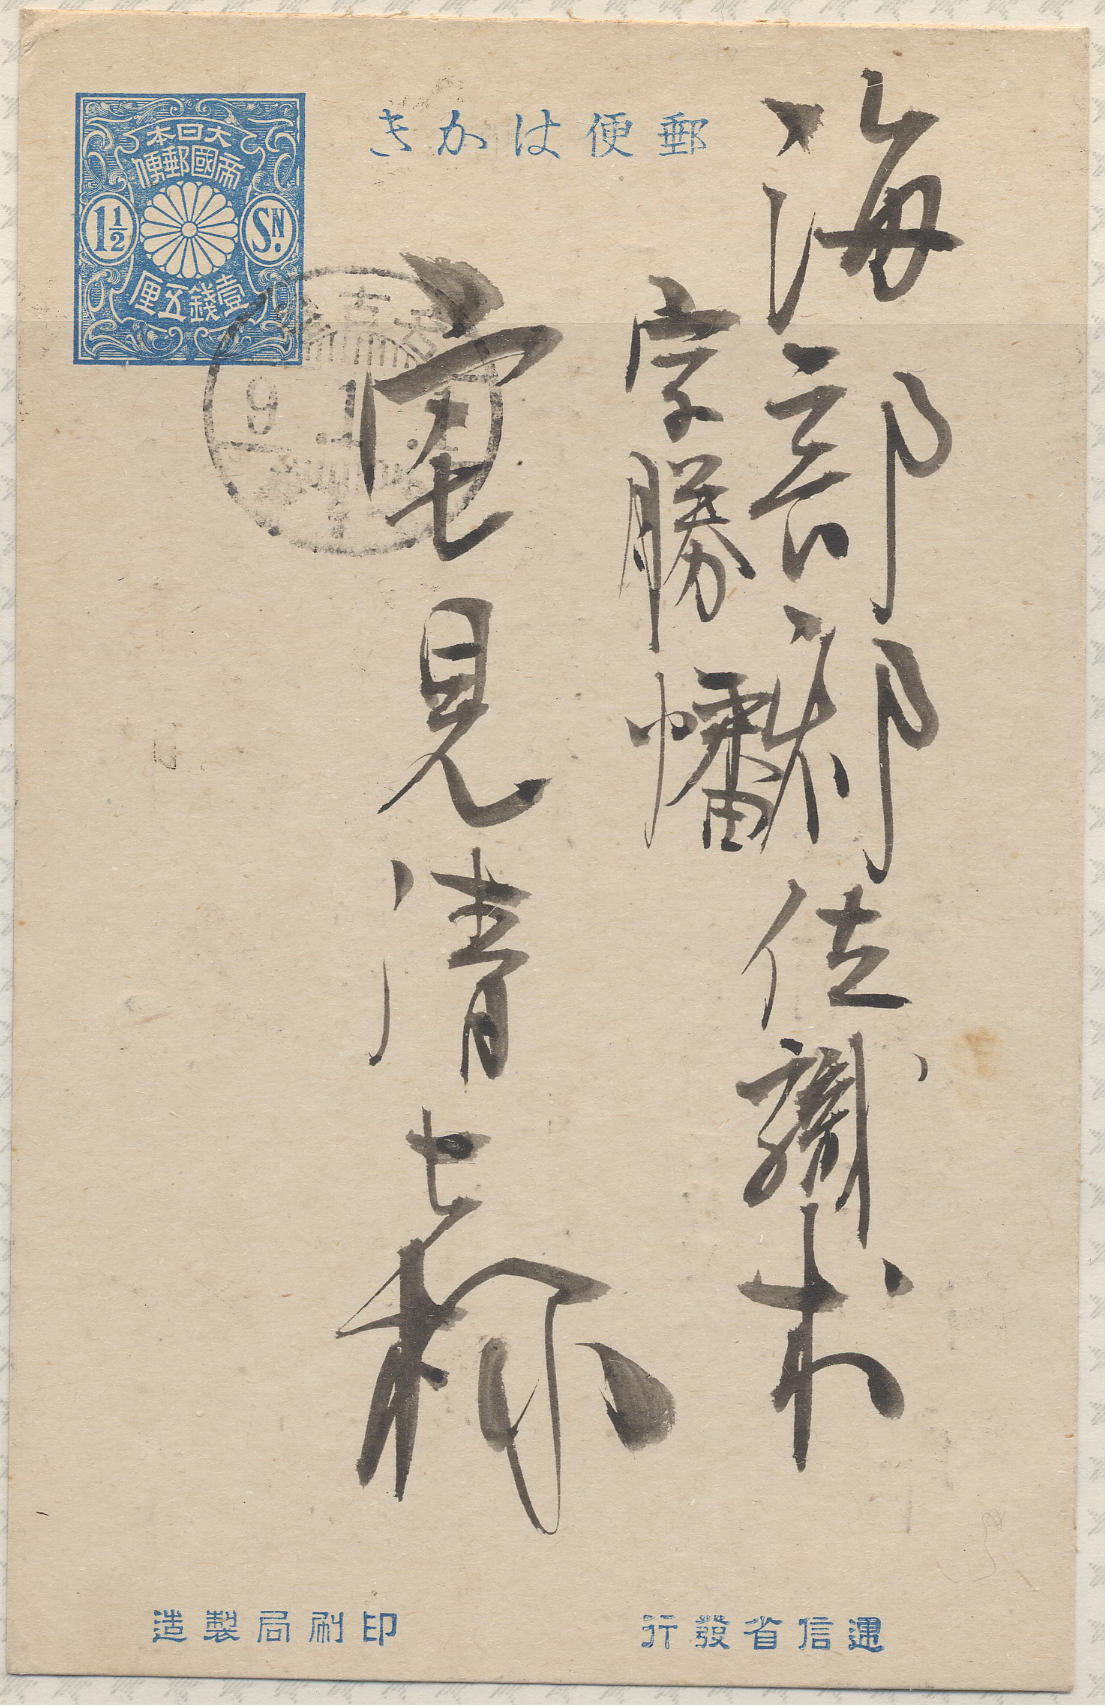 郵便はかき
大日本
帝國郵便
1½ SN.
壹錢五厘
海部郡佐織村
字勝幡
宅見清七様
9.1.
遞信省發行
印刷局製造